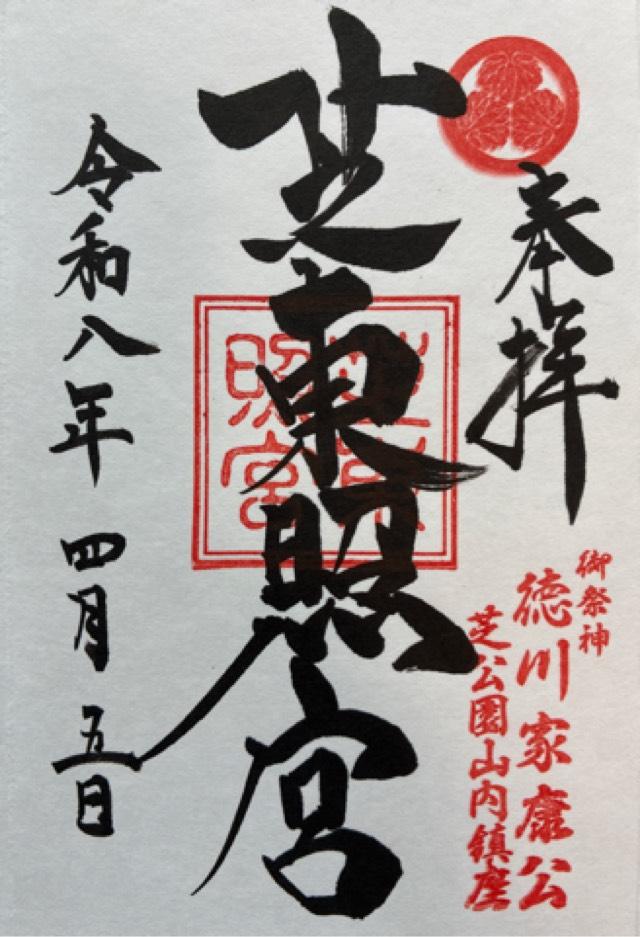 奉拝
御祭神
徳川家康公
芝公園山内鎮座
芝東照宮
芝東照宮
令和八年 四月 五日